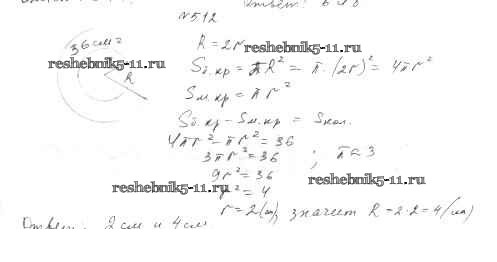 Ответ: 6 и 8
№512
36 см²
R = 2r
reshebnik5-11.ru
reshebnik5-11.ru
R
Sб.кр = πR² = π·(2r)² = 4πr²
Sм.кр = πr²
Sб.кр - Sм.кр = Sкол.
4πr² - πr² = 36
3πr² = 36 ; π ≈ 3
9r² = 36
reshebnik5-11.ru
reshebnik5-11.ru
r² = 4
r = 2 (см), значит R = 2·2 = 4 (см)
Ответ: 2 см и 4 см